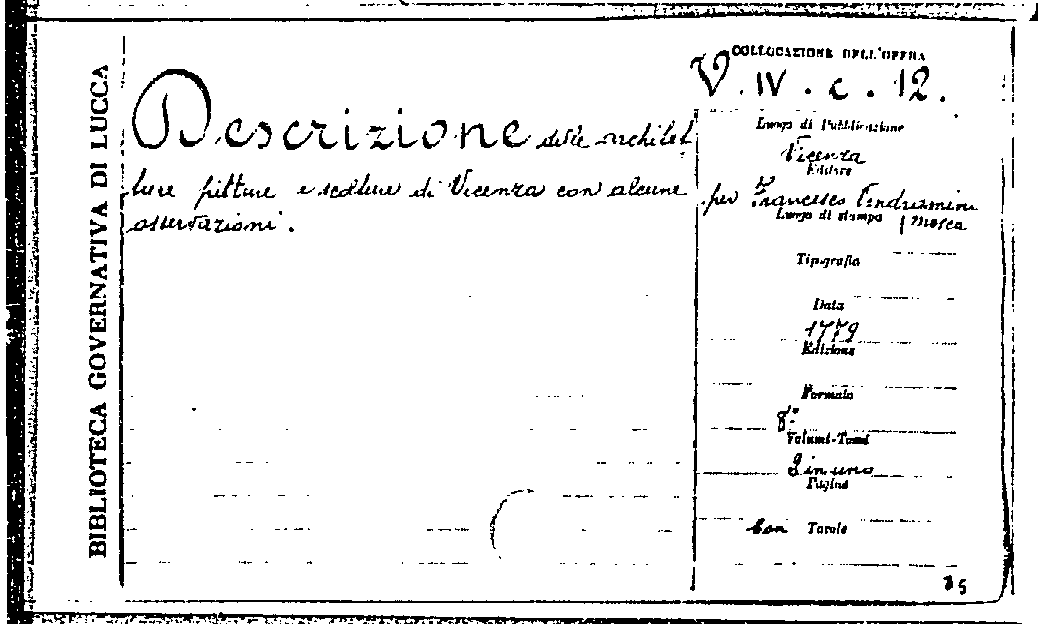 BIBLIOTECA GOVERNATIVA DI LUCCA
Descrizione delle architet
ture pitture e scolture di Vicenza con alcune
osservazioni.
COLLOCAZIONE DELL'OPERA
V. IV. c. 12.
Luogo di Pubblicazione
Vicenza
Editore
per Francesco Vendramini
Mosca
Luogo di stampa
Tipografia
Data
1779
Edizione
Formato
8°
Volumi-Tomi
2 in uno
Pagine
Con Tavole